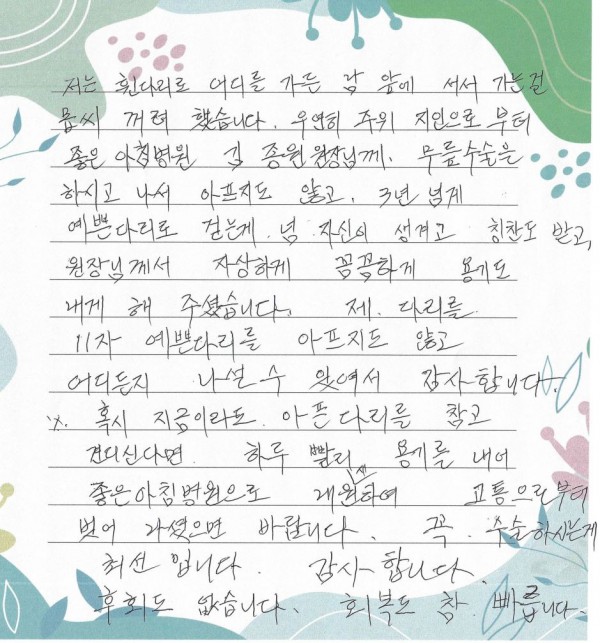 저는 휜다리로 어디를 가든 남 앞에 서서 가는걸
몹씨 꺼려 했습니다. 우연히 주위 지인으로 부터
좋은 아침병원 김 종원 원장님께. 무릎수술을
하시고 나서 아프지도 않고, 3년 넘게
예쁜다리로 걷는게 넘 자신이 생겨고 칭찬도 받고,
원장님께서 자상하게 꼼꼼하게 용기도
내게 해 주셨습니다. 제. 다리를
11자 예쁜다리를 아프지도 않고
어디든지 나설 수 있여서 감사합니다.
※. 혹시 지금이라도. 아픈 다리를 참고
견디신다면. 하루 빨리 용기를 내어
좋은아침병원으로 내원하여 고통으로부터
벗어 나셨으면 바랍니다. 꼭. 수술하시는게
최선 입니다. 감사 합니다.
후회도 없습니다. 회복도 참. 빠릅니다.